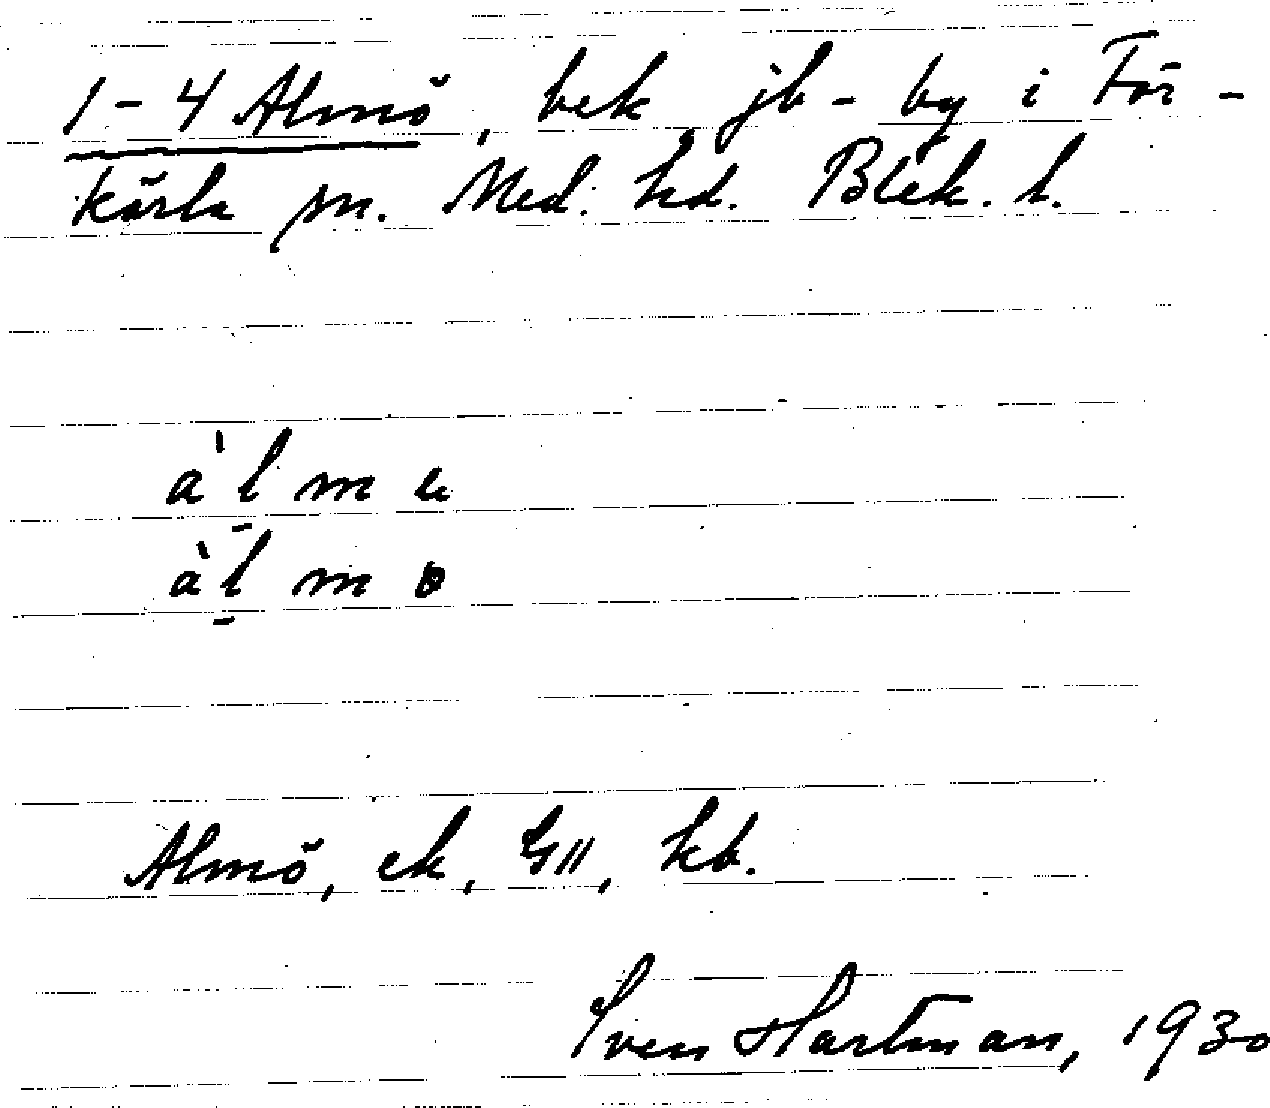 1-4 Almö, bek jb-by i För-
kärla sn. Med. hd. Blek. l.
a`lm
a`lmo
Almö, ek, GII, kb.
Sven Hartman, 1930